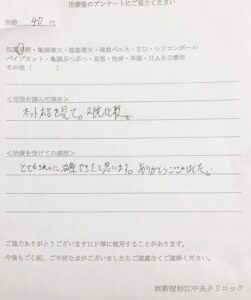 治療後のアンケートにご協力ください
年齢 40代
包茎手術・亀頭増大・陰茎増大・湾曲ペニス・ED・シリコンボール
パイプカット・亀頭ぶつぶつ・長茎・性病・早漏・HARG療法
その他（　　　）
＜当院を選んだ理由＞
ネット広告を見て。
＜治療を受けての感想＞
とてもきれいに治療できたと思います。ありがとうございました。
ご協力ありがとうございますHP等に使用することがあります。
今後もご心配、ご不明な点がございましたらご遠慮なくご連絡ください。
西新宿杉江中央クリニック